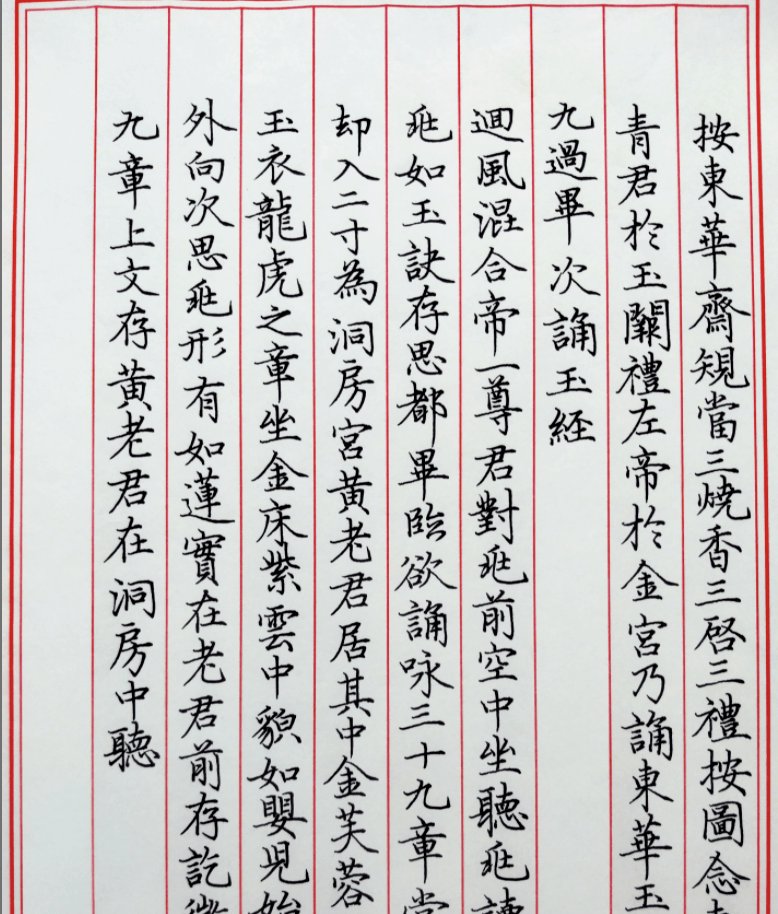 按東華齋䂓當三燒香三啓三禮按圖念
青君於玉闕禮左帝於金宮乃誦東華玉
九過畢次誦玉経
迴風混合帝一尊君對𠂢前空中坐聽𠂢
𠂢如玉訣存思都畢臨欲誦咏三十九章
却入二寸為洞房宮黄老君居其中金芙蓉
玉衣龍虎之章坐金床紫雲中貌如嬰児始
外向次思𠂢形有如蓮實在老君前存訖
九章上文存黄老君在洞房中聽